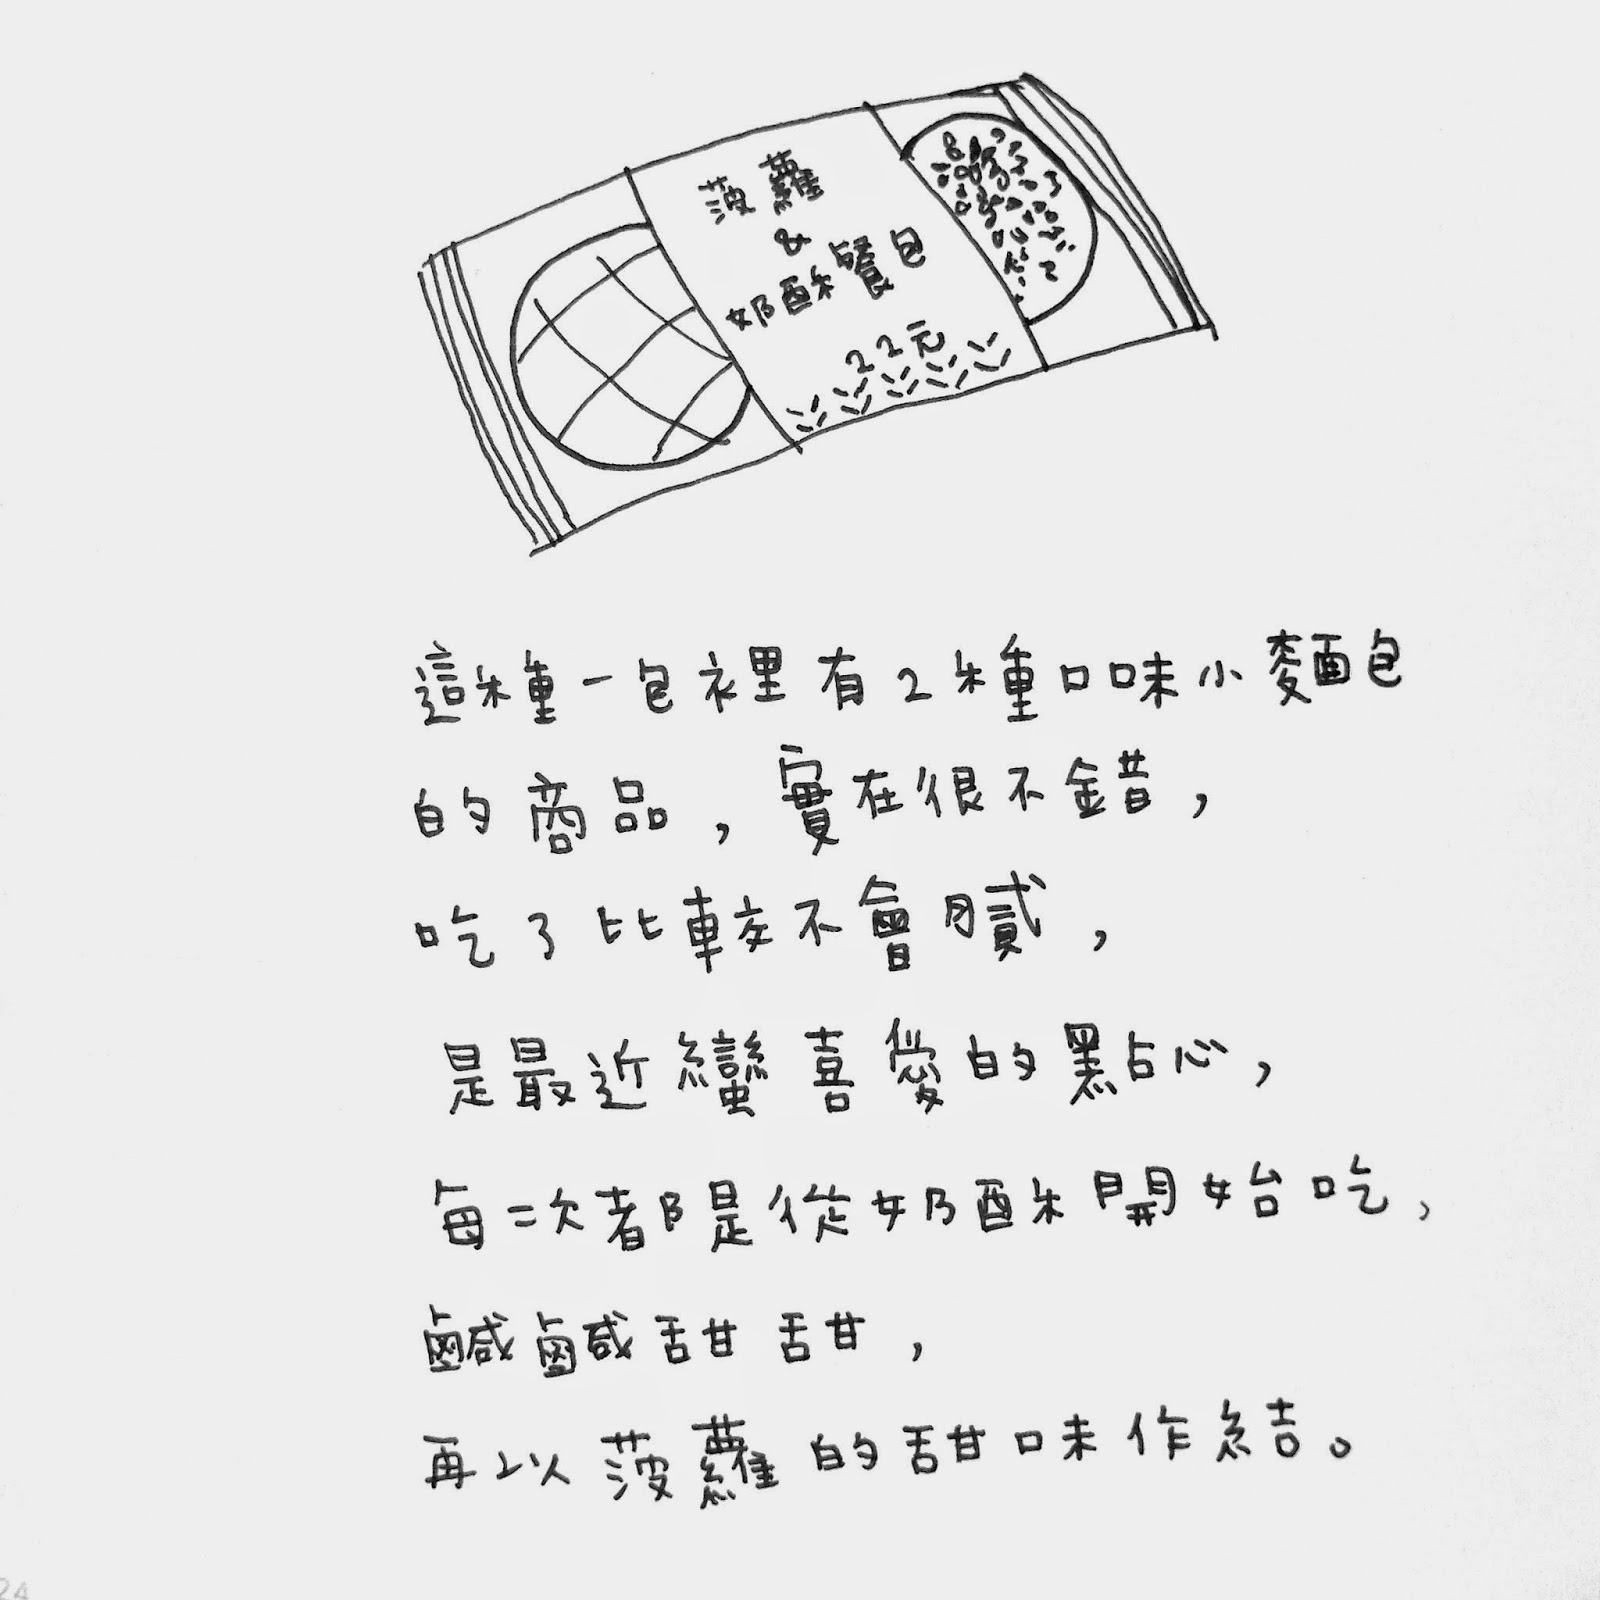 菠蘿
&
奶酥餐包
22元
這種一包裡有2種口味小麵包
的商品,實在很不錯,
吃了比較不會膩,
是最近蠻喜愛的點心,
每次都是從奶酥開始吃,
鹹鹹甜甜,
再以菠蘿的甜味作結。
24